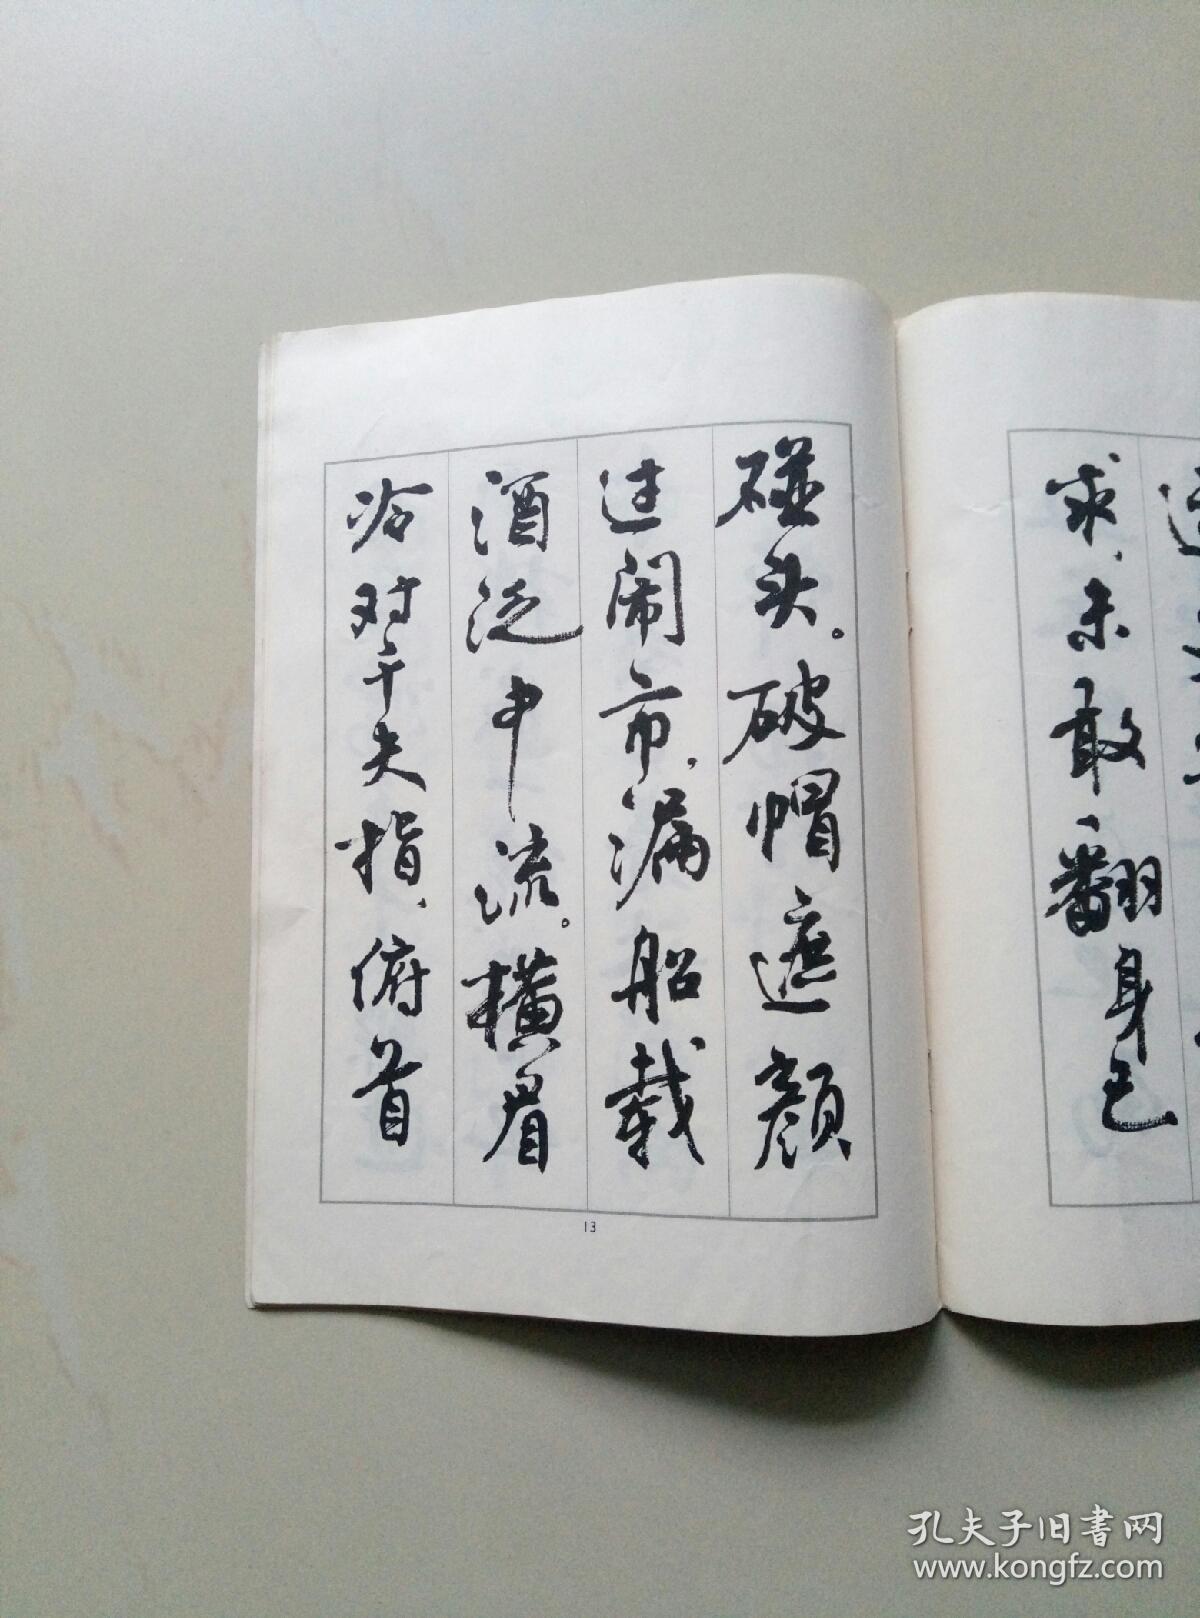 求,未敢翻身已
碰头。破帽遮颜
过闹市,漏船载
酒泛中流。横眉
冷对千夫指,俯首
13
孔夫子旧书网
www.kongfz.com